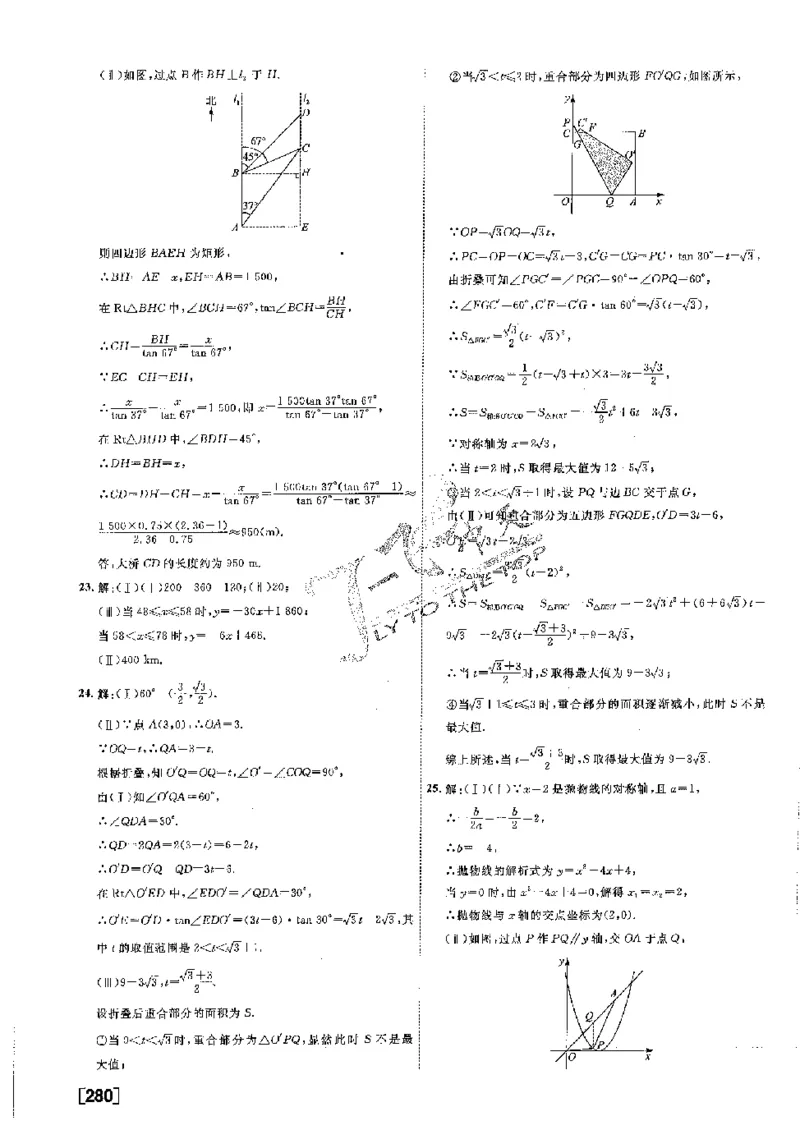 (Ⅱ)如图,过点 B 作 BH⊥l₂ 于 H.
北 l₁ l₂
D
67°
C
45°
B H
37°
A E
则四边形 BAEH 为矩形,
∴BH=AE=x,EH=AB=1 500,
在 Rt△BHC 中,∠BCH=67°,tan∠BCH=BH/CH,
∴CH=BH/tan 67°=x/tan 67°,
∵EC-CH=EH,
∴x/tan 37°-x/tan 67°=1 500,即 x=1 500tan 37°tan 67°/tan 67°-tan 37°,
在 Rt△BHD 中,∠BDH=45°,
∴DH=BH=x,
∴CD=DH-CH=x-x/tan 67°=1 500tan 37°(tan 67°-1)/tan 67°-tan 37°≈
1 500×0.75×(2.36-1)/2.36-0.75≈950(m).
答:大桥 CD 的长度约为 950 m.
23.解:(Ⅰ)(ⅰ)200 360 120;(ⅱ)20;
(ⅲ)当 48≤x≤58 时,y=-30x+1 860;
当 58<x≤78 时,y=-6x+468.
(Ⅱ)400 km.
24.解:(Ⅰ)60° (3/2,√3/2).
(Ⅱ)∵点 A(3,0),∴OA=3.
∵OQ=t,∴QA=3-t,
根据折叠,知 O′Q=OQ=t,∠O′=∠COQ=90°,
由(Ⅰ)知∠O′QA=60°,
∴∠QDA=30°.
∴QD=2QA=2(3-t)=6-2t,
∴O′D=O′Q-QD=3t-6.
在 Rt△O′ED 中,∠EDO′=∠QDA=30°,
∴O′E=O′D·tan∠EDO′=(3t-6)·tan 30°=√3t-2√3,其
中 t 的取值范围是 2<t<√3+1.
(Ⅲ)9-3√3,t=√3+3/2.
设折叠后重合部分的面积为 S.
①当 0<t≤√3时,重合部分为△O′PQ,显然此时 S 不是最
大值;
[280]
②当√3<t≤2 时,重合部分为四边形 FO′QG,如图所示,
y
P C′
C F B
G
O′
O Q A x
∵OP=√3OQ=√3t,
∴PC=OP-OC=√3t-3,C′G=CG=PC·tan 30°=t-√3,
由折叠可知∠PGC′=∠PGC=90°-∠OPQ=60°,
∴∠FGC′=60°,C′F=C′G·tan 60°=√3(t-√3),
∴S△FGC′=√3/2(t-√3)²,
∵S梯形O′C′GQ=1/2(t-√3+t)×3=3t-3√3/2,
∴S=S梯形O′C′GQ-S△FGC′=-√3/2t²+6t-3√3,
∵对称轴为 x=2√3,
∴当 t=2 时,S 取得最大值为 12-5√3;
③当 2<t<√3+1 时,设 PQ 与边 BC 交于点 G,
由(Ⅱ)可知重合部分为五边形 FGQDE,O′D=3t-6,
O′E=√3t-2√3,
(t-2)²,
∴S=S梯形O′C′GQ-S△FGC′-S△ =-2√3t²+(6+6√3)t-
9√3=-2√3(t-√3+3/2)²+9-3√3,
∴当 t=√3+3/2时,S 取得最大值为 9-3√3;
④当√3+1≤t≤3 时,重合部分的面积逐渐减小,此时 S 不是
最大值.
综上所述,当 t=√3+3/2时,S 取得最大值为 9-3√3.
25.解:(Ⅰ)(ⅰ)∵x=2 是抛物线的对称轴,且 a=1,
∴-b/2a=-b/2=2,
∴b=-4,
∴抛物线的解析式为 y=x²-4x+4,
当 y=0 时,由 x²-4x+4=0,解得 x₁=x₂=2,
∴抛物线与 x 轴的交点坐标为(2,0).
(ⅱ)如图,过点 P 作 PQ∥y 轴,交 OA 于点 Q,
y
A
Q
O P x
LY TO THE TOP